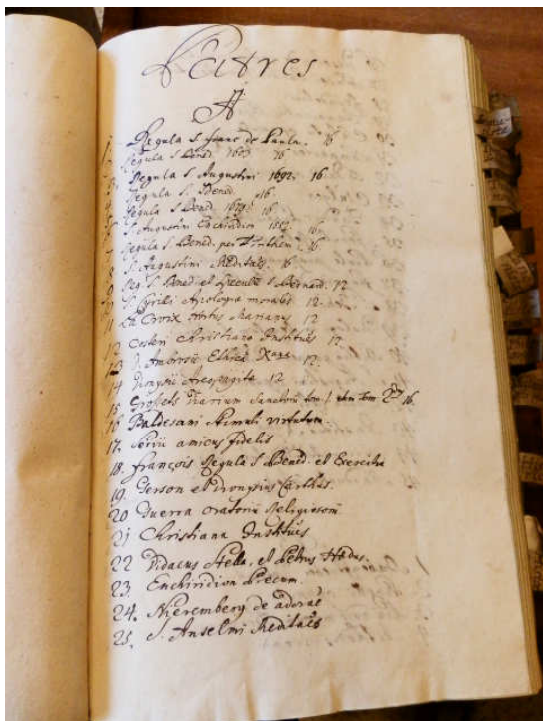 Patres
A
1. Regula S. Franc de Paula. 16
2. Regula S Bened. 1603 16
3. Regula S. Augustini 1692. 16
4. Regula S. Bened. 16.
5. Regula S Bened. 16
6. S. Augustini Enchiridion 16.
7. Regula S. Bened. per 16
8. S. Augustini Meditaes. 16
9. Reg. S. Bened et Specula S Bernard. 12
10. S. Cyrilli Apologia morales 12.
11. La Croix Hortus Marianus 12
12. Costeri Christianae Institues 12
13. S. Ambrosii 12.
14. Dionysii Areopagite 12
15. Diarium Sanctorum tom 1 16.
16. Baldesani Stimuli virtutum
17. Serii amicus fidelis
18. François Regula S Bened. et Exercitia
19. Gerson et Dionysius Carthus.
20 Guerra oratorium Religiosom
21 Christiana Institues
22 Didacus Stella, et Petrus
23. Enchiridion Precum.
24. Nieremberg de adorae
25. S. Anselmi Meditaes